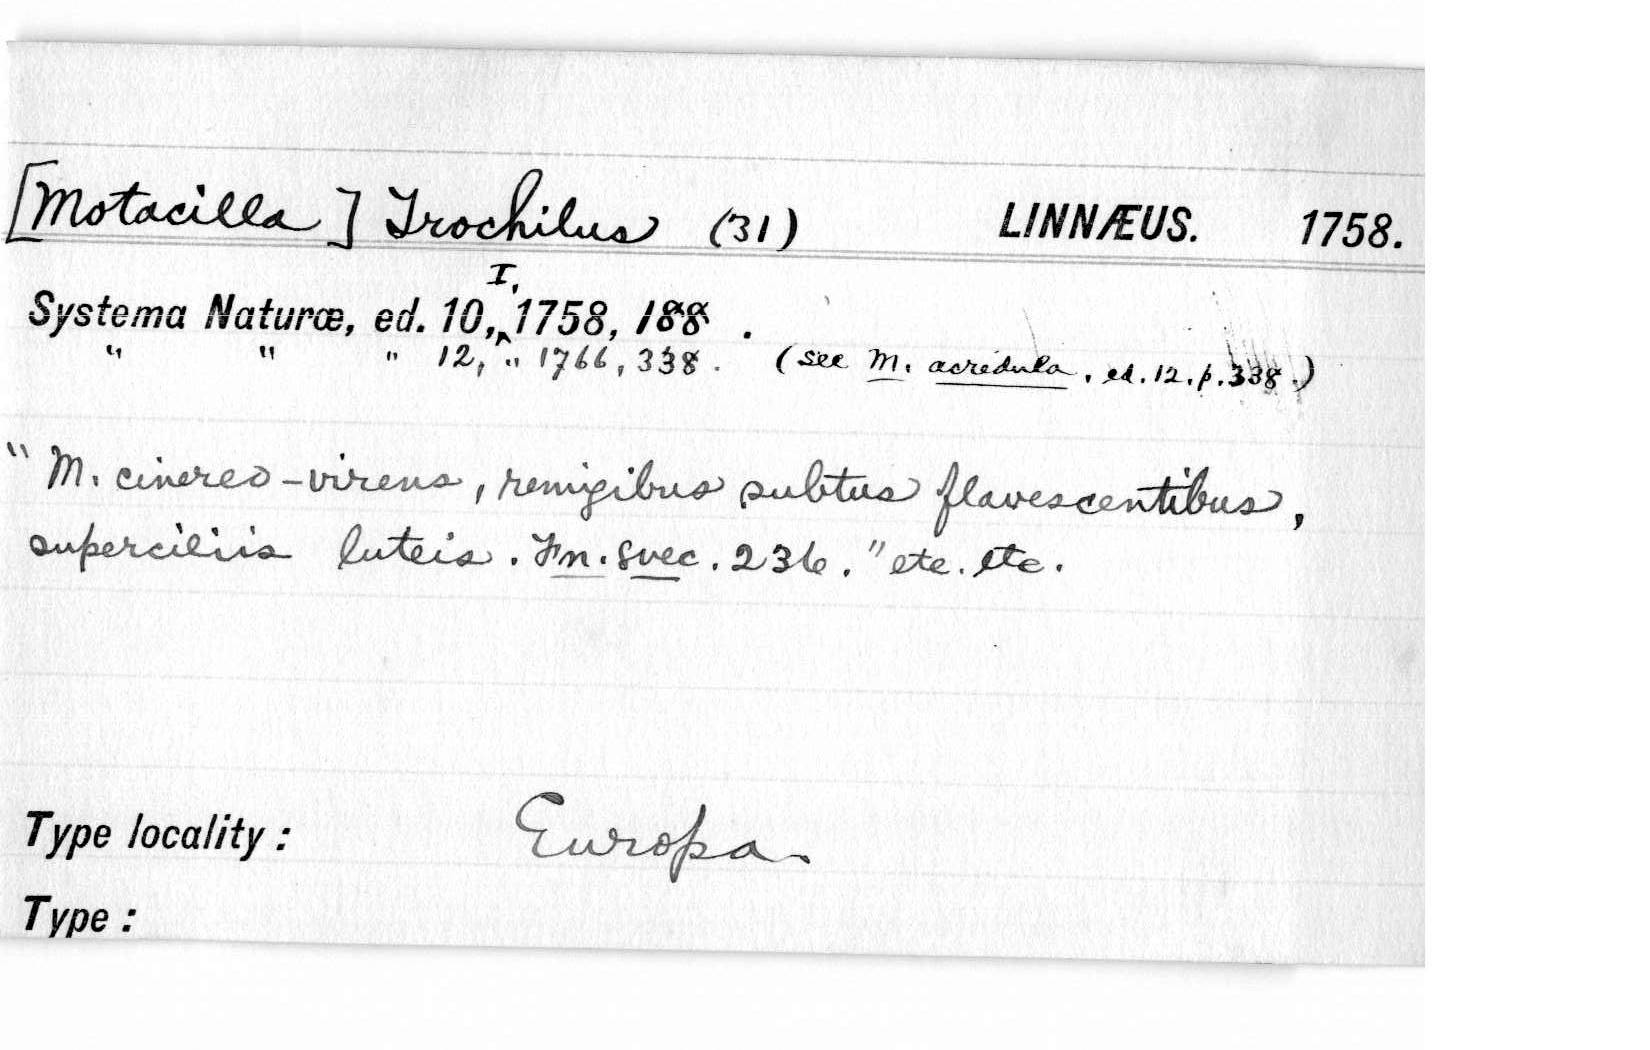 [Motacilla] Trochilus (31) LINNÆUS. 1758.
I,
Systema Naturæ, ed. 10,^ 1758, 188 .
" " " 12, " 1766, 338. (see M. acredula, ed. 12. p. 338.)
"M. cinereo-virens, remigibus subtus flavescentibus,
superciliis luteis. Fn. svec. 236." etc. etc.
Type locality : Europa.
Type :